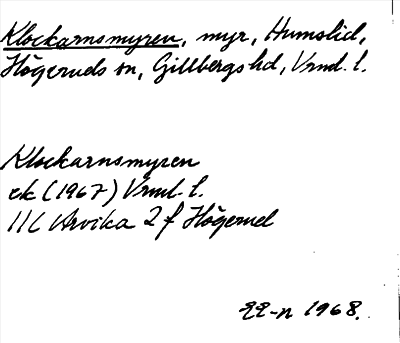 Klockarnsmyren, myr, Humslid,
Högeruds sn, Gillbergs hd, Vrml. l.
Klockarnsmyren
ek (1967) Vrml. l.
11C Arvika 2 f Högerud
1968.